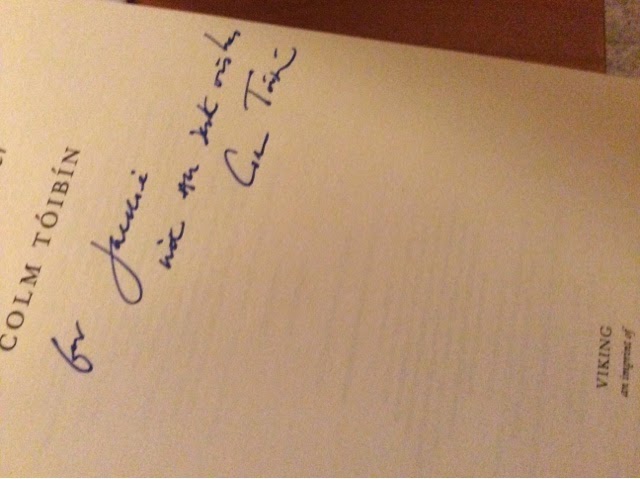 COLM TÓIBÍN
for Jackie
with all best wishes
Colm Tóibín
VIKING
an imprint of